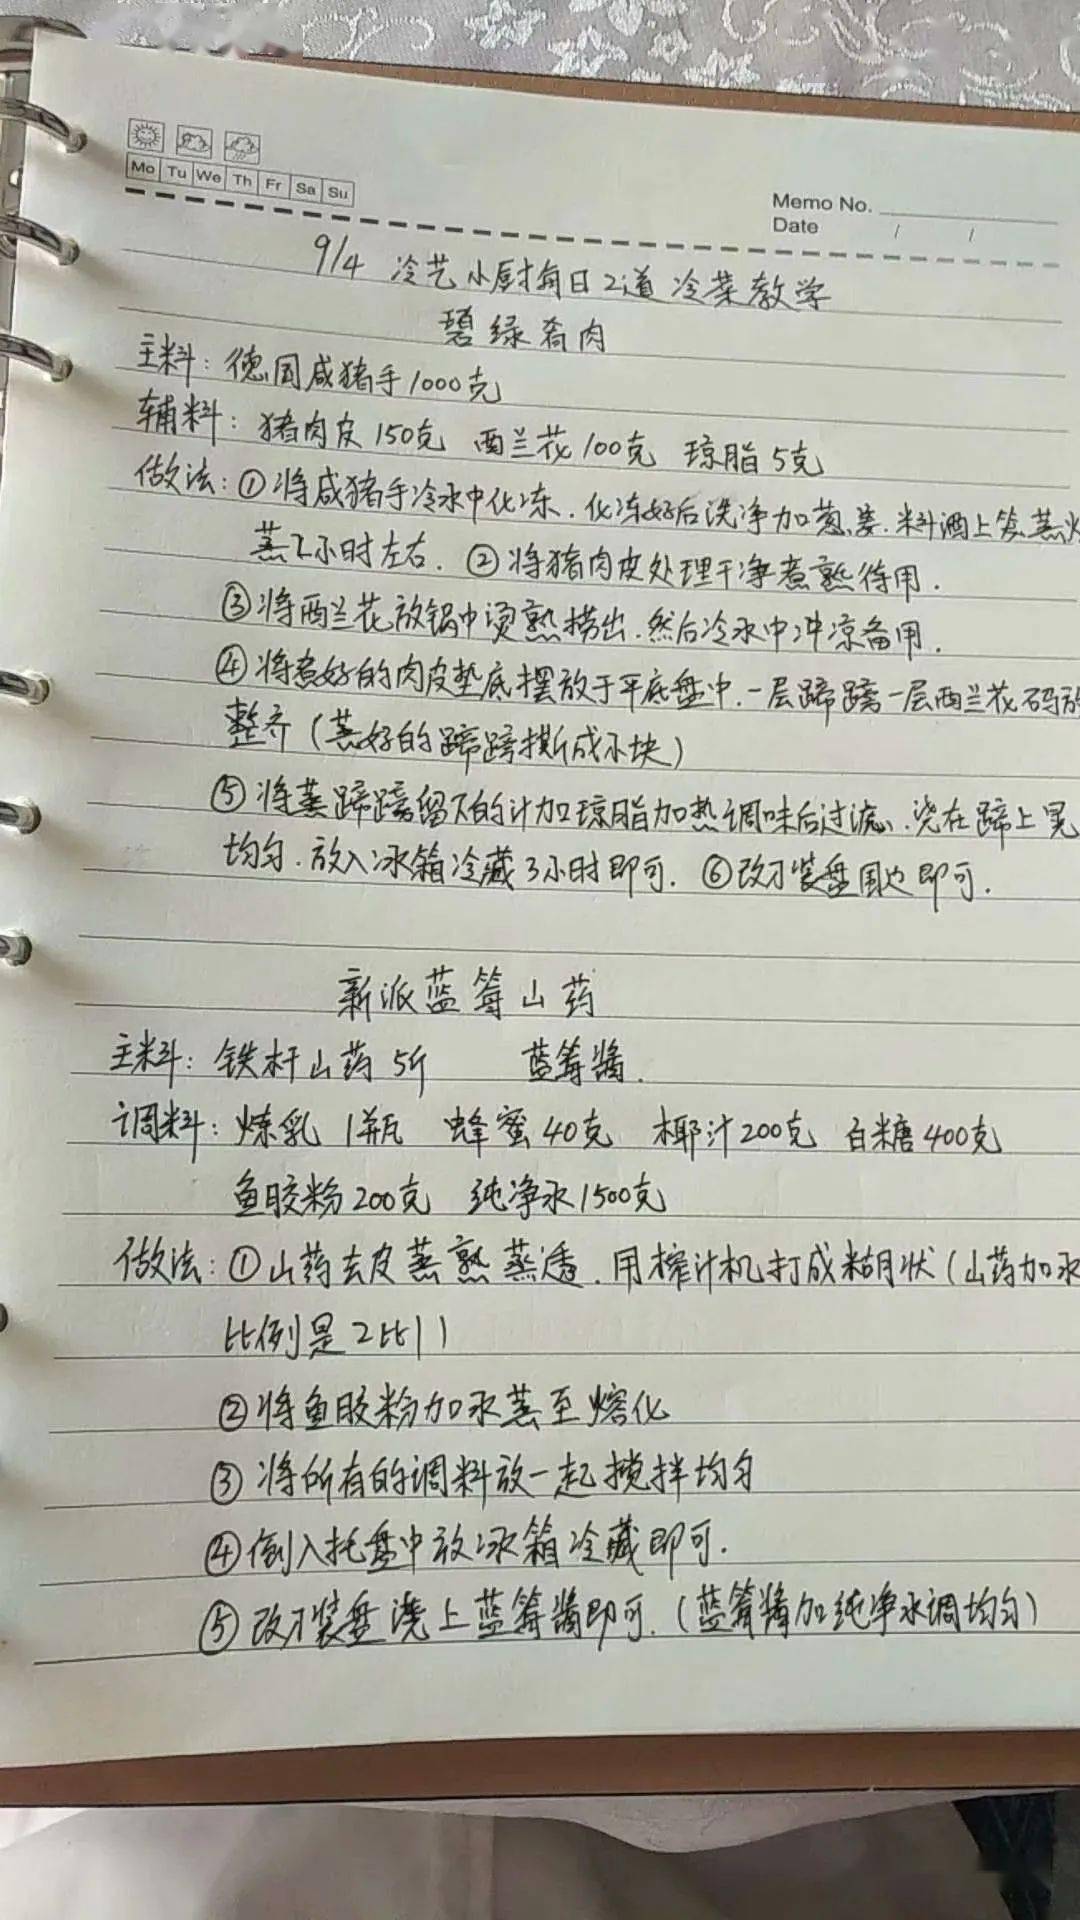 Mo Tu We Th Fr Sa Su
Memo No.
Date / /
9/4 冷艺小厨每日2道冷菜教学
碧绿肴肉
主料:德国咸猪手1000克
辅料:猪肉皮150克 西兰花100克 琼脂5克
做法:①将咸猪手冷水中化冻.化冻好后洗净加葱.姜.料酒上笼蒸
蒸2小时左右.②将猪肉皮处理干净煮熟待用.
③将西兰花放锅中烫熟捞出.然后冷水中冲凉备用.
④将煮好的肉皮垫底摆放于平底盘中.一层蹄髈一层西兰花码放
整齐(蒸好的蹄髈撕成小块)
⑤将蒸蹄髈留下的汁加琼脂加热调味后过滤.浇在蹄上晃
均匀.放入冰箱冷藏3小时即可.⑥改刀装盘围边即可.
新派蓝莓山药
主料:铁杆山药5斤 蓝莓酱.
调料:炼乳1瓶 蜂蜜40克 椰汁200克 白糖400克
鱼胶粉200克 纯净水1500克
做法:①山药去皮蒸熟蒸透.用榨汁机打成糊状(山药加水
比例是2比1)
②将鱼胶粉加水蒸至熔化
③将所有的调料放一起搅拌均匀
④倒入托盘中放冰箱冷藏即可.
⑤改刀装盘浇上蓝莓酱即可.(蓝莓酱加纯净水调均匀)